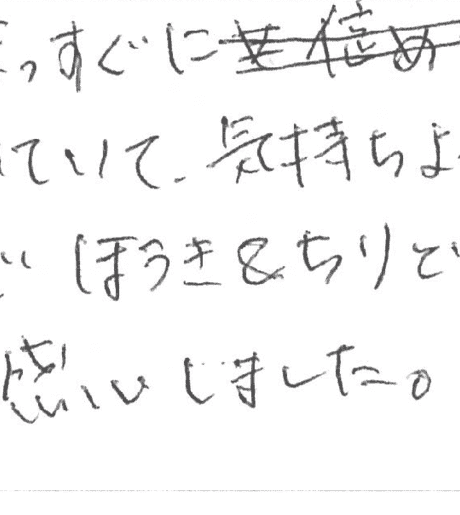 っすぐに
ていて、気持ちよ
い ほうき&ちりと
しました。